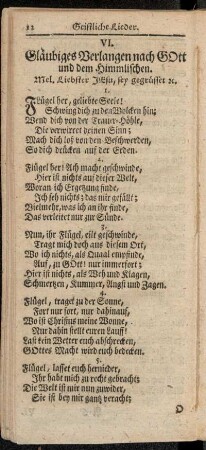 12 Geistliche Lieder.
VI.
Gläubiges Verlangen nach GOtt
und dem Himmlischen.
Mel. Liebster JEsu, sey gegrüsset ꝛc.
1.
Flügel her, geliebte Seele!
Schwing dich zu den Wolcken hin;
Wend dich von der Trauer-Höhle,
Die verwirret deinen Sinn;
Mach dich loß von den Beschwerden,
So dich drücken auf der Erden.
2.
Flügel her! Ach macht geschwinde,
Hier ist nichts auf dieser Welt,
Woran ich Ergetzung finde,
Ich seh nichts das mir gefällt;
Vielmehr, was ich an ihr finde,
Das verleitet nur zur Sünde.
3.
Nun, ihr Flügel, eilt geschwinde,
Tragt mich doch aus diesem Ort,
Wo ich nichts, als Quaal empfinde,
Auf, zu GOtt! nur immerfort;
Hier ist nichts, als Weh und Klagen,
Schmertzen, Kummer, Angst und Zagen.
4.
Flügel, traget zu der Sonne,
Fort nur fort, nur dahinauf,
Wo ist Christus meine Wonne,
Nur dahin stellt euren Lauff!
Last kein Wetter euch abschrecken,
GOttes Macht wird euch bedecken.
5.
Flügel, lasset euch hernieder,
Ihr habt mich zu recht gebracht;
Die Welt ist mir nun zuwider,
Sie ist bey mir gantz veracht;
D